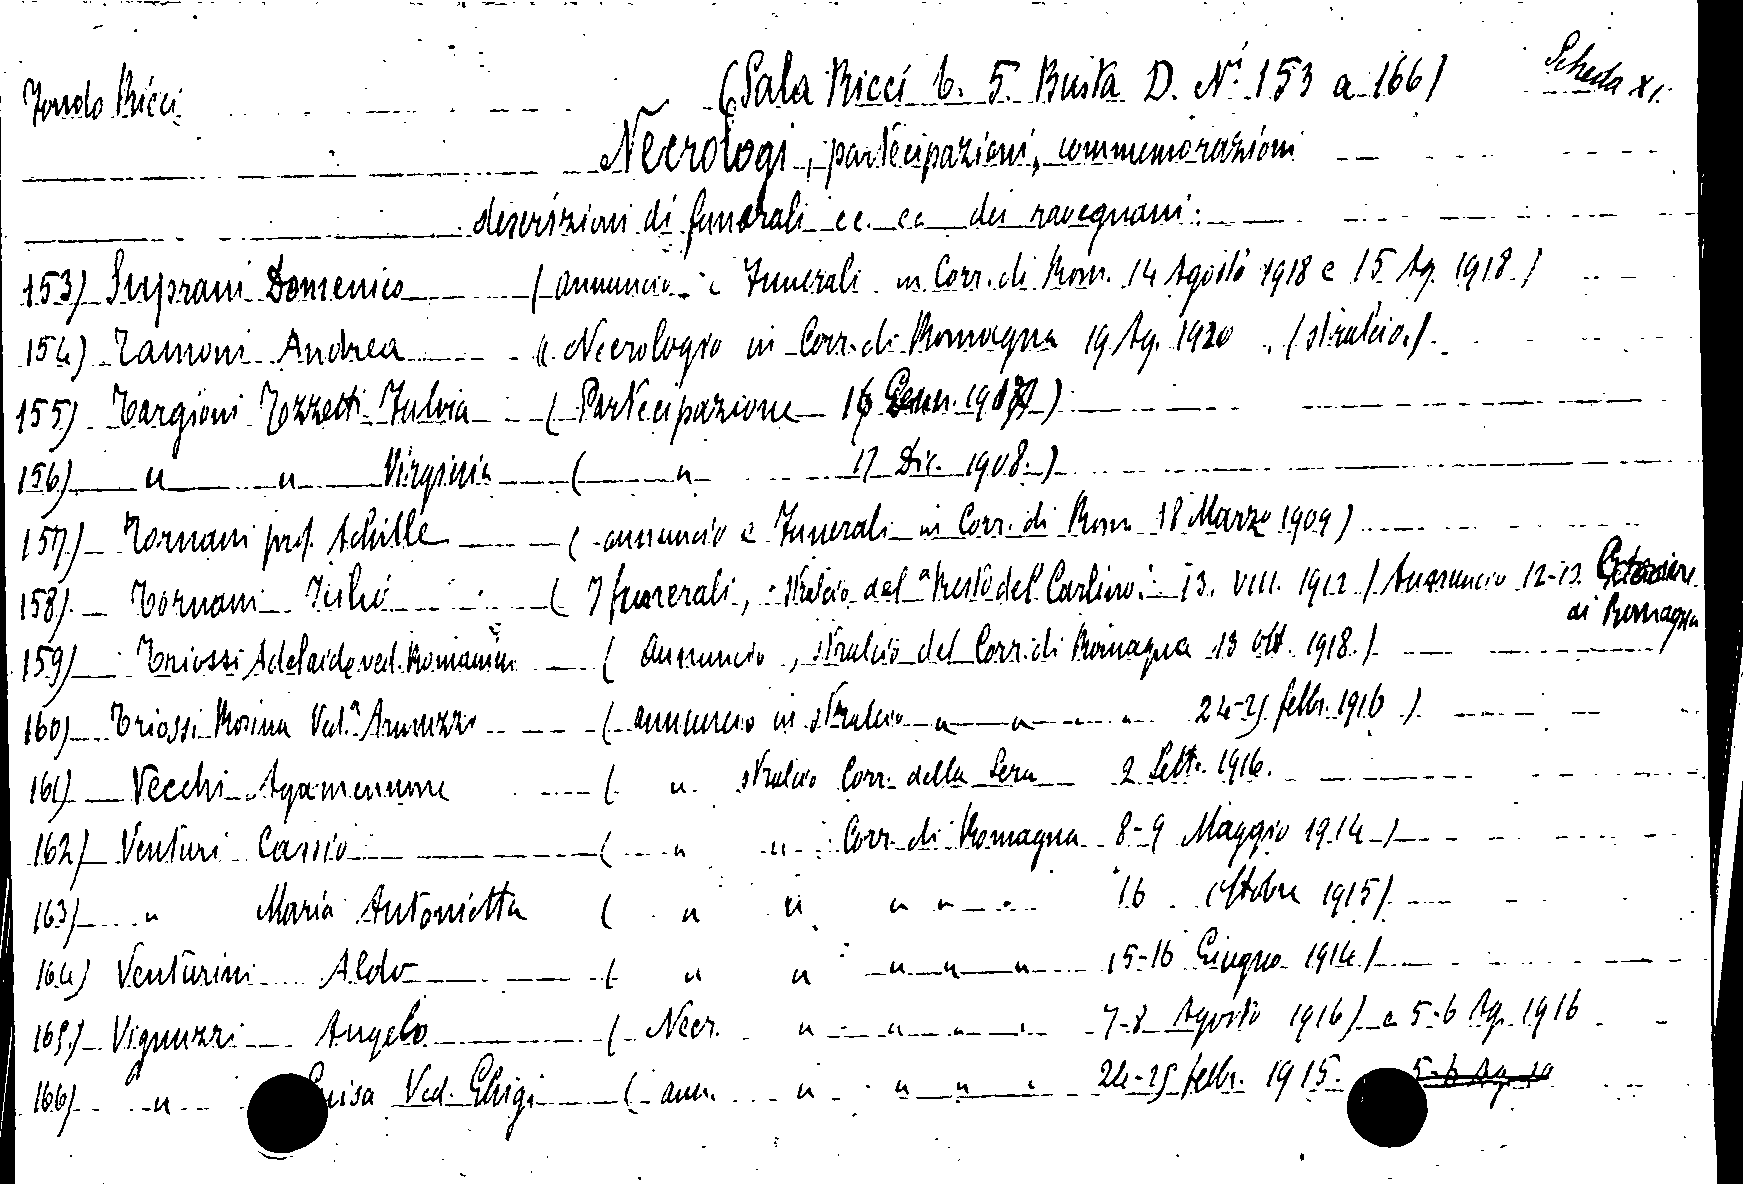 Fondo Ricci (Sala Ricci b. 5. Busta D. Ni 153 a 166) Scheda XI.
Necrologi, partecipazioni, commemorazioni
descrizioni di funerali ec. ec. dei ravegnani:
153) Suprani Domenico (annuncio e Funerali in Corr. di Rom. 14 Agosto 1918 e 15 Ag. 1918.)
154) Tamoni Andrea (Necrologio in Corr. di Romagna 19 Ag. 1920 (stralcio.)
155) Targioni Tozzetti Fulvia (Partecipazione 16 Genn.
156) " " Virginia ( " 17 Dic. 1908.)
157) Tornani prof. Achille (annuncio e Funerali in Corr. di Rom 18 Marzo 1909)
158) Tornani Tullio ( I funerali, stralcio dal "Resto del Carlino." 13. VIII. 1912 / Annuncio 12-13
di Romagna
159) Triossi Adelaide ved. Romanini ( Annuncio, stralcio del Corr. di Romagna 13 Ott. 1918.)
160) Triossi Rosina Ved.a (annuncio in stralcio " " " 24-25 febbr. 1916)
161) Vecchi Agamennone ( " stralcio Corr. della Sera 2 Sett. 1916.
162) Venturi Cassio ( " " Corr. di Romagna 8-9 Maggio 1914)
163) " Maria Antonietta ( " " " " " 16 Ottobre 1915)
164) Venturini Aldo ( " " " " " 15-16 Giugno 1914)
165) Vignuzzi Angelo ( Necr. " " " " 7-8 Agosto 1916) e 5-6 Ag. 1916
166) " Luisa Ved. Ghigi ( ann. " " " " 24-25 febbr. 1915. 5-6 Ag.